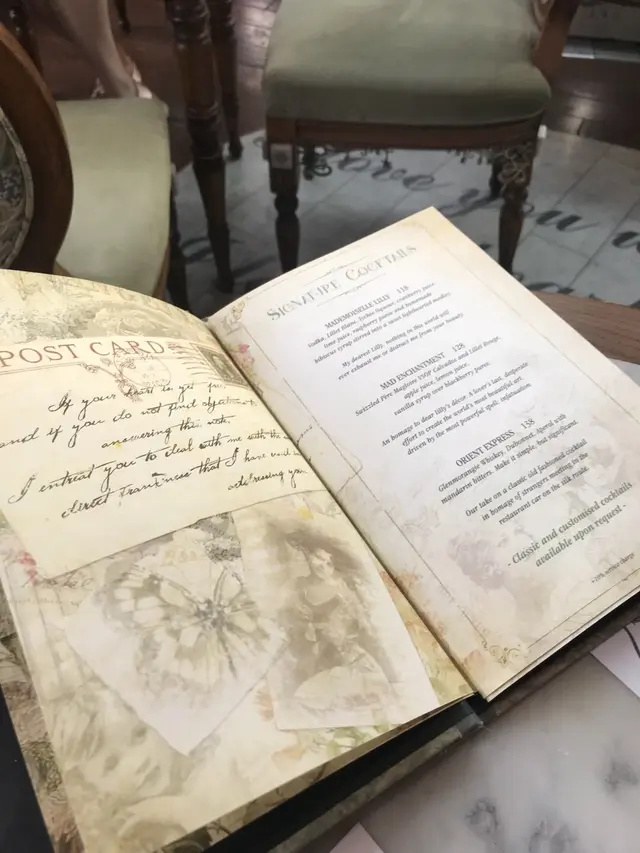 POST CARD
If your heart is yet
and if you do not find
answering this note,
I entreat you to deal with me with the
that I have
addressing you
SIGNATURE COCKTAILS
MADEMOISELLE LILLY 138
Vodka, Lillet Blanc, lychee liqueur, cranberry juice,
lime juice, raspberry puree and homemade
hibiscus syrup stirred into a most lighthearted modder.
My dearest Lilly, nothing in this world will
ever exhaust me or distract me from your beauty
MAD ENCHANTMENT 128
Swizzled Père Magloire VSOP Calvados and Lillet Rouge,
apple juice, lemon juice,
vanilla syrup over blackberry puree.
An homage to dear lilly's décor. A lover's last, desperate
effort to create the world's most beautiful art
driven by the most powerful spell: infatuation.
ORIENT EXPRESS 138
Glenmorangie Whiskey, Dubonnet, Aperol with
mandarin bitters. Make it simple, but significant.
Our take on a classic old fashioned cocktail
in homage of strangers meeting in the
restaurant car on the silk route.
- Classic and customised cocktails
available upon request -
+ 10% service charge
you